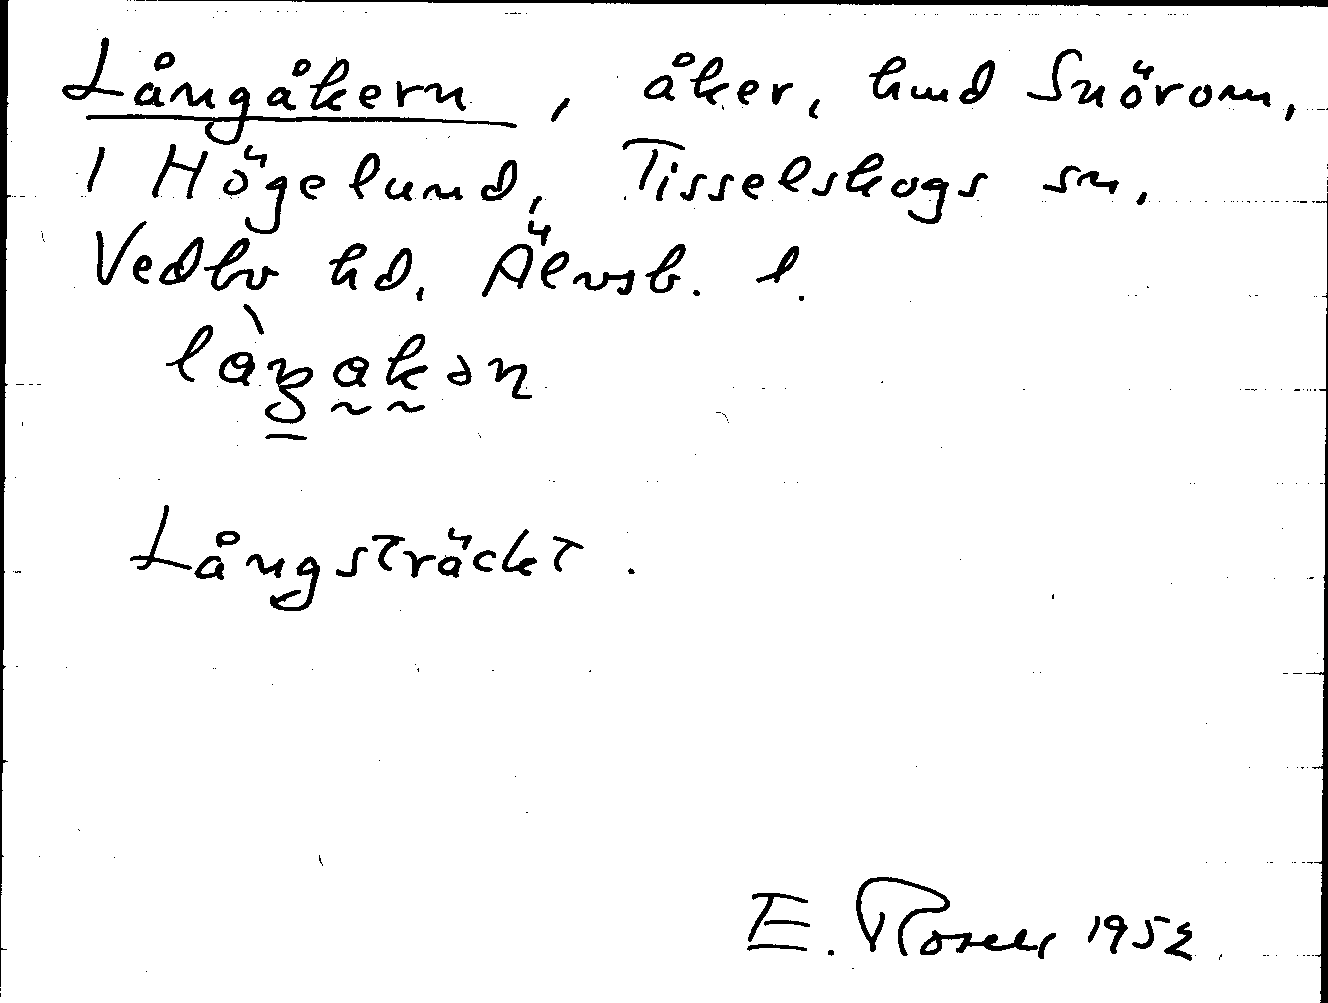 Långåkern, åker, hmd Snörom,
1 Högelund, Tisselskogs sn,
Vedbo hd, Älvsb. l.
Långsträckt.
E. 1952